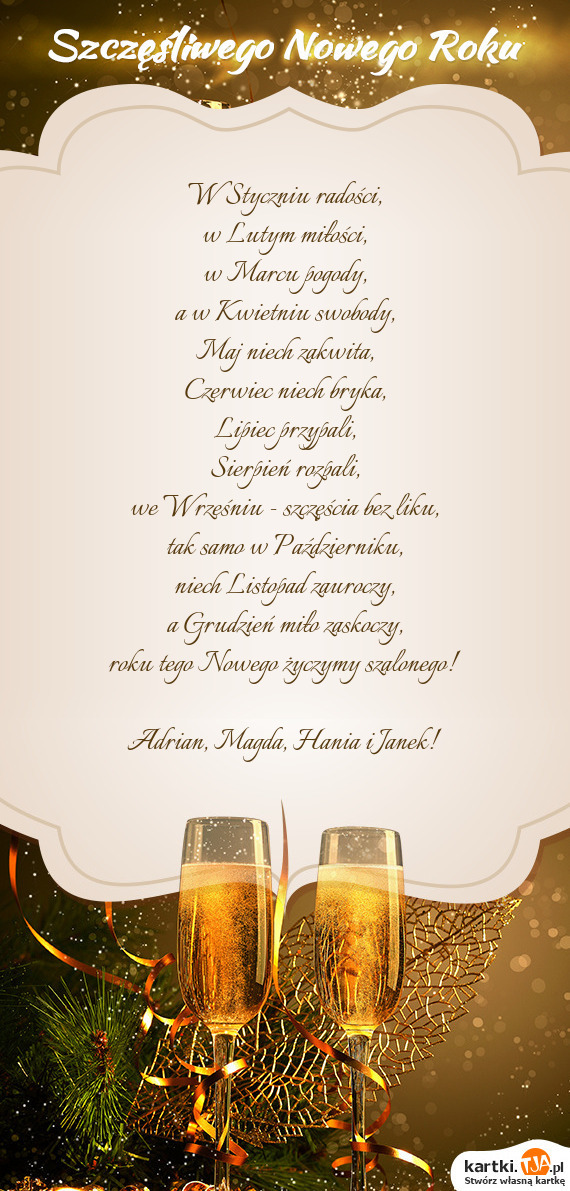 Szczęśliwego Nowego Roku
W Styczniu radości,
w Lutym miłości,
w Marcu pogody,
a w Kwietniu swobody,
Maj niech zakwita,
Czerwiec niech bryka,
Lipiec przypali,
Sierpień rozpali,
we Wrześniu - szczęścia bez liku,
tak samo w Październiku,
niech Listopad zauroczy,
a Grudzień miło zaskoczy,
roku tego Nowego życzymy szalonego!
Adrian, Magda, Hania i Janek!
kartki.TJA.pl
Stwórz własną kartkę